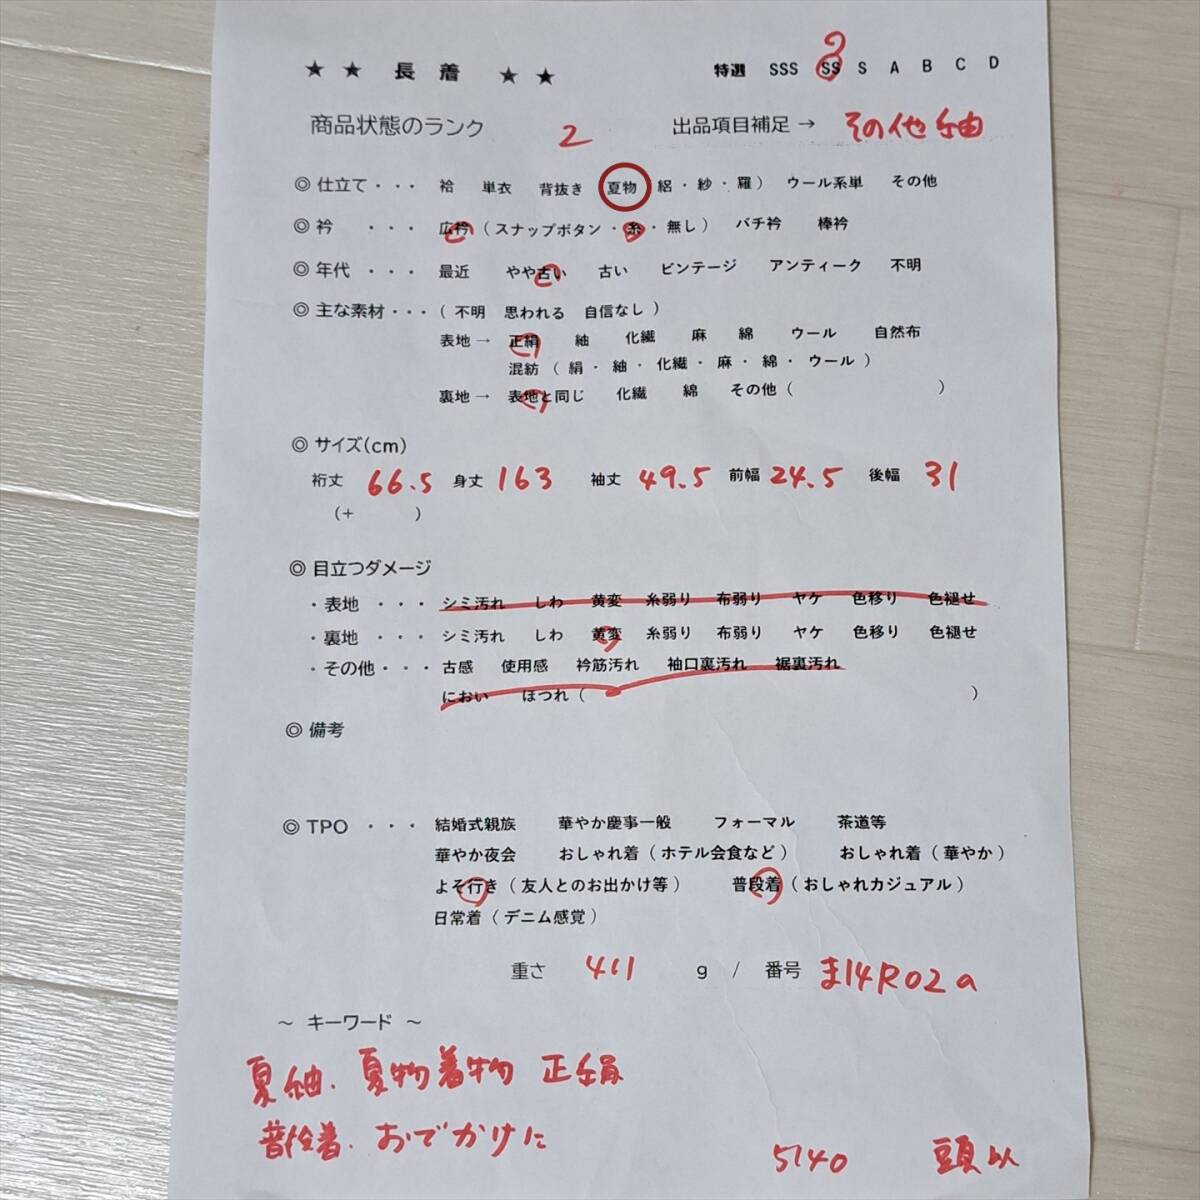 ★ ★ 長 着 ★ ★ 特選 SSS SS S A B C D
商品状態のランク 2 出品項目補足 → その他紬
◎ 仕立て・・・ 袷 単衣 背抜き 夏物 絽・紗・羅） ウール系単 その他
◎ 衿 ・・・ 広衿（スナップボタン・糸・無し） バチ衿 棒衿
◎ 年代 ・・・ 最近 やや古い 古い ビンテージ アンティーク 不明
◎ 主な素材・・・（ 不明 思われる 自信なし ）
表地 → 正絹 紬 化繊 麻 綿 ウール 自然布
混紡（ 絹・紬・化繊・麻・綿・ウール ）
裏地 → 表地と同じ 化繊 綿 その他（ ）
◎ サイズ(cm)
裄丈 66.5 身丈 163 袖丈 49.5 前幅 24.5 後幅 31
（+ ）
◎ 目立つダメージ
・表地 ・・・ シミ汚れ しわ 黄変 糸弱り 布弱り ヤケ 色移り 色褪せ
・裏地 ・・・ シミ汚れ しわ 黄変 糸弱り 布弱り ヤケ 色移り 色褪せ
・その他・・・ 古感 使用感 衿筋汚れ 袖口裏汚れ 裾裏汚れ
におい ほつれ（ ）
◎ 備考
◎ TPO ・・・ 結婚式親族 華やか慶事一般 フォーマル 茶道等
華やか夜会 おしゃれ着（ホテル会食など） おしゃれ着（華やか）
よそ行き（友人とのお出かけ等） 普段着（おしゃれカジュアル）
日常着（デニム感覚）
重さ 411 g / 番号 ま14R02a
～ キーワード ～
夏紬、夏物着物 正絹
普段着、おでかけに
5140